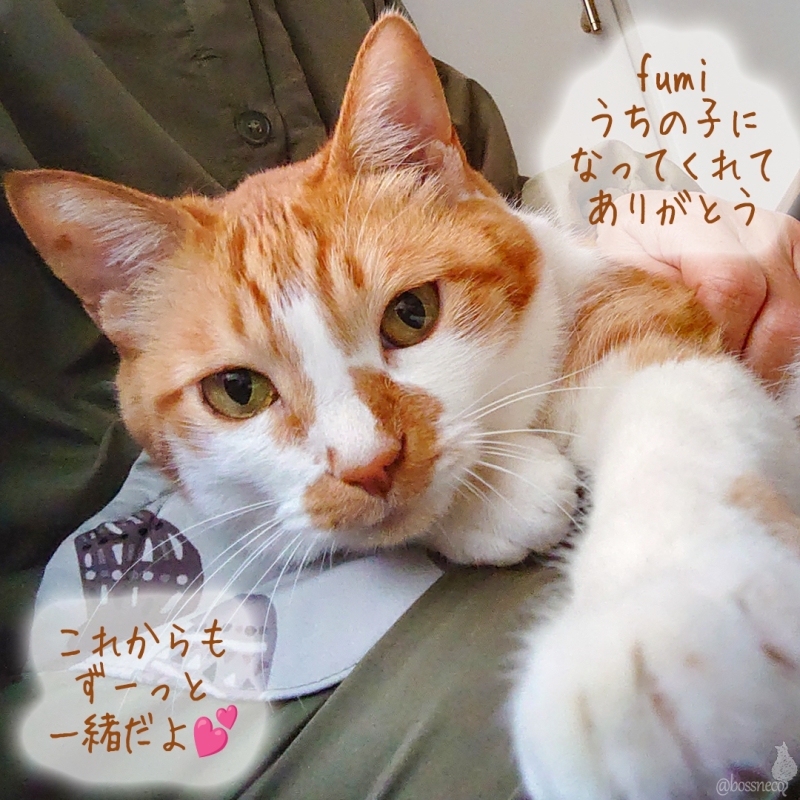 fumi
うちの子に
なってくれて
ありがとう
これからも
ずーっと
一緒だよ💕
@bossneco